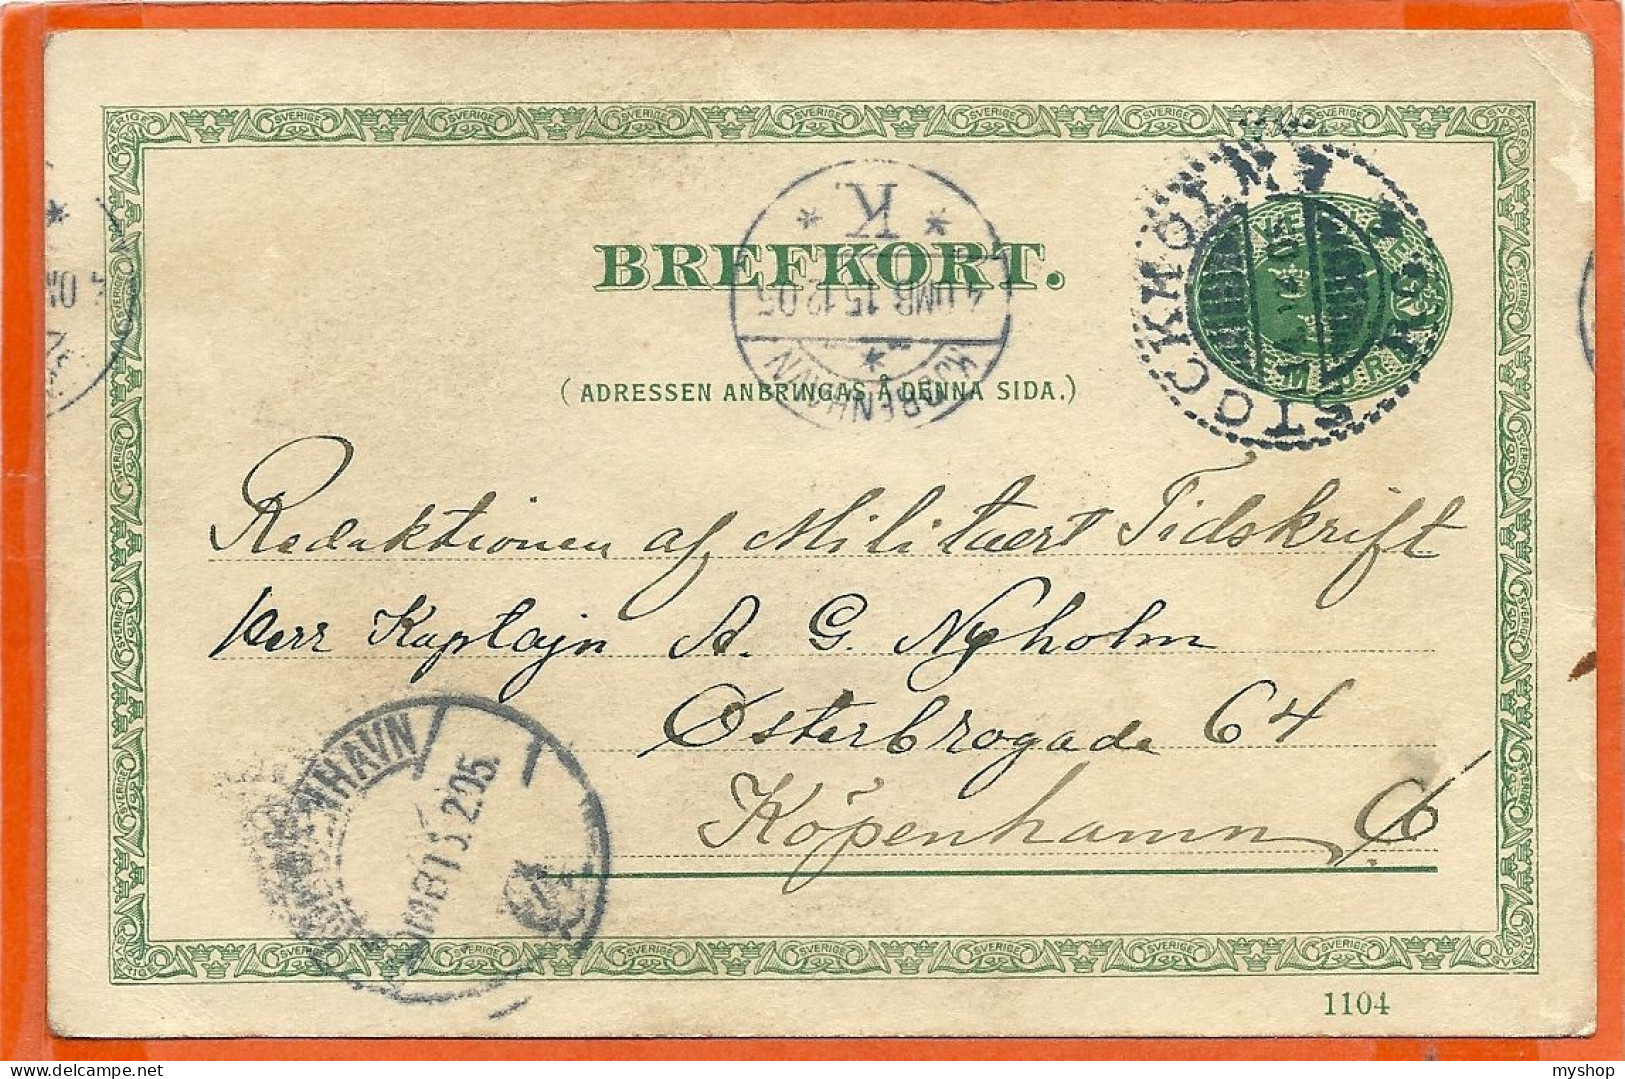 BREFKORT.
(ADRESSEN ANBRINGAS Å DENNA SIDA.)
K.
4.OMB 15.12.05
KJØBENHAVN
STOCKHOLM
Redaktionen af Militært Tidskrift
Herr Kaptajn A. G. Nyholm
Østerbrogade 64
Köpenhamn Ø
1104
myshop